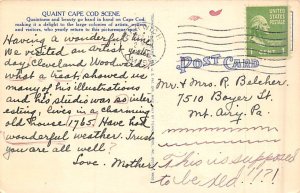 QUAINT CAPE COD SCENE.
Quaintness and beauty go hand in hand on Cape Cod,
making it a delight to the large colonies of artists, writers,
and visitors, who yearly return to this picturesque spot.
Having a wonderful time.
We visited an artist yester-
day, Cleveland Woodward,
what a treat, showed us
many of his illustrations
and his studio was so inter-
esting, lives in a charming
old house 1765. Have had
wonderful weather. Trust
you are all well?
Love. Mother
POST CARD
Mr. & Mrs. R. Belcher.
7510 Boyer St.
Mt. Airy. Pa
This is supposed
to be red!?!